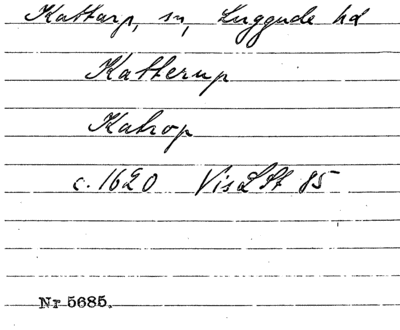 Kattarp, sn, Luggude hd
Katterup
Katrop
c. 1620 VisLSt 85
Nr 5685.